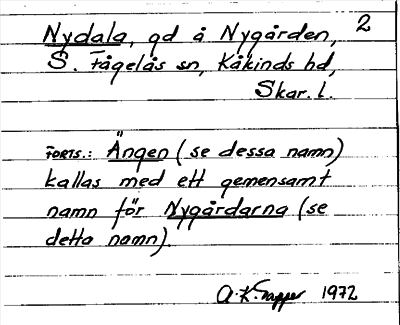 Nydala, gd å Nygården, 2
S. Fågelås sn, Kåkinds hd,
Skar. l.
FORTS.: Ängen (se dessa namn)
kallas med ett gemensamt
namn för Nygårdarna (se
detta namn).
A.K. 1972